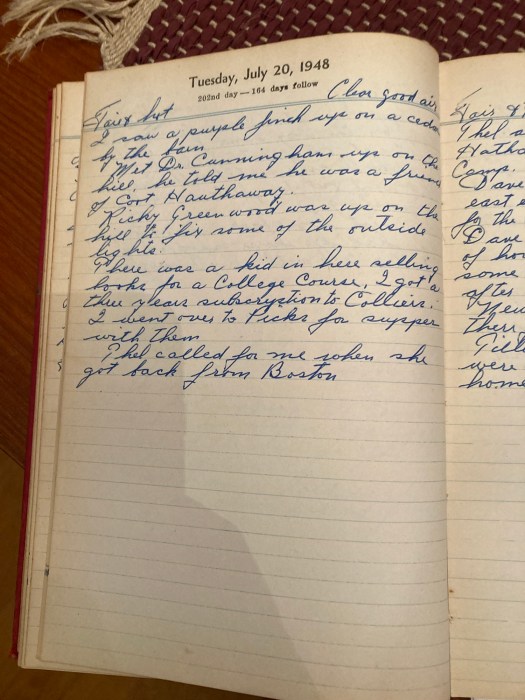 Tuesday, July 20, 1948
202nd day — 164 days follow
Fair & hot Clear good air
I saw a purple finch up on a cedar
by the barn
Met Dr. Cunningham up on the
hill, he told me he was a friend
of Coot Hauthaway.
Ricky Greenwood was up on the
hill to fix some of the outside
lights.
There was a kid in here selling
books for a College Course, I got a
three years subscryption to Colliers.
I went over to Picks for supper
with them
Thel called for me when she
got back from Boston
Fair &
Thel
Hatha
Camp.
Dave
east
for the
Dave
of
some
after
there
Till
were
home